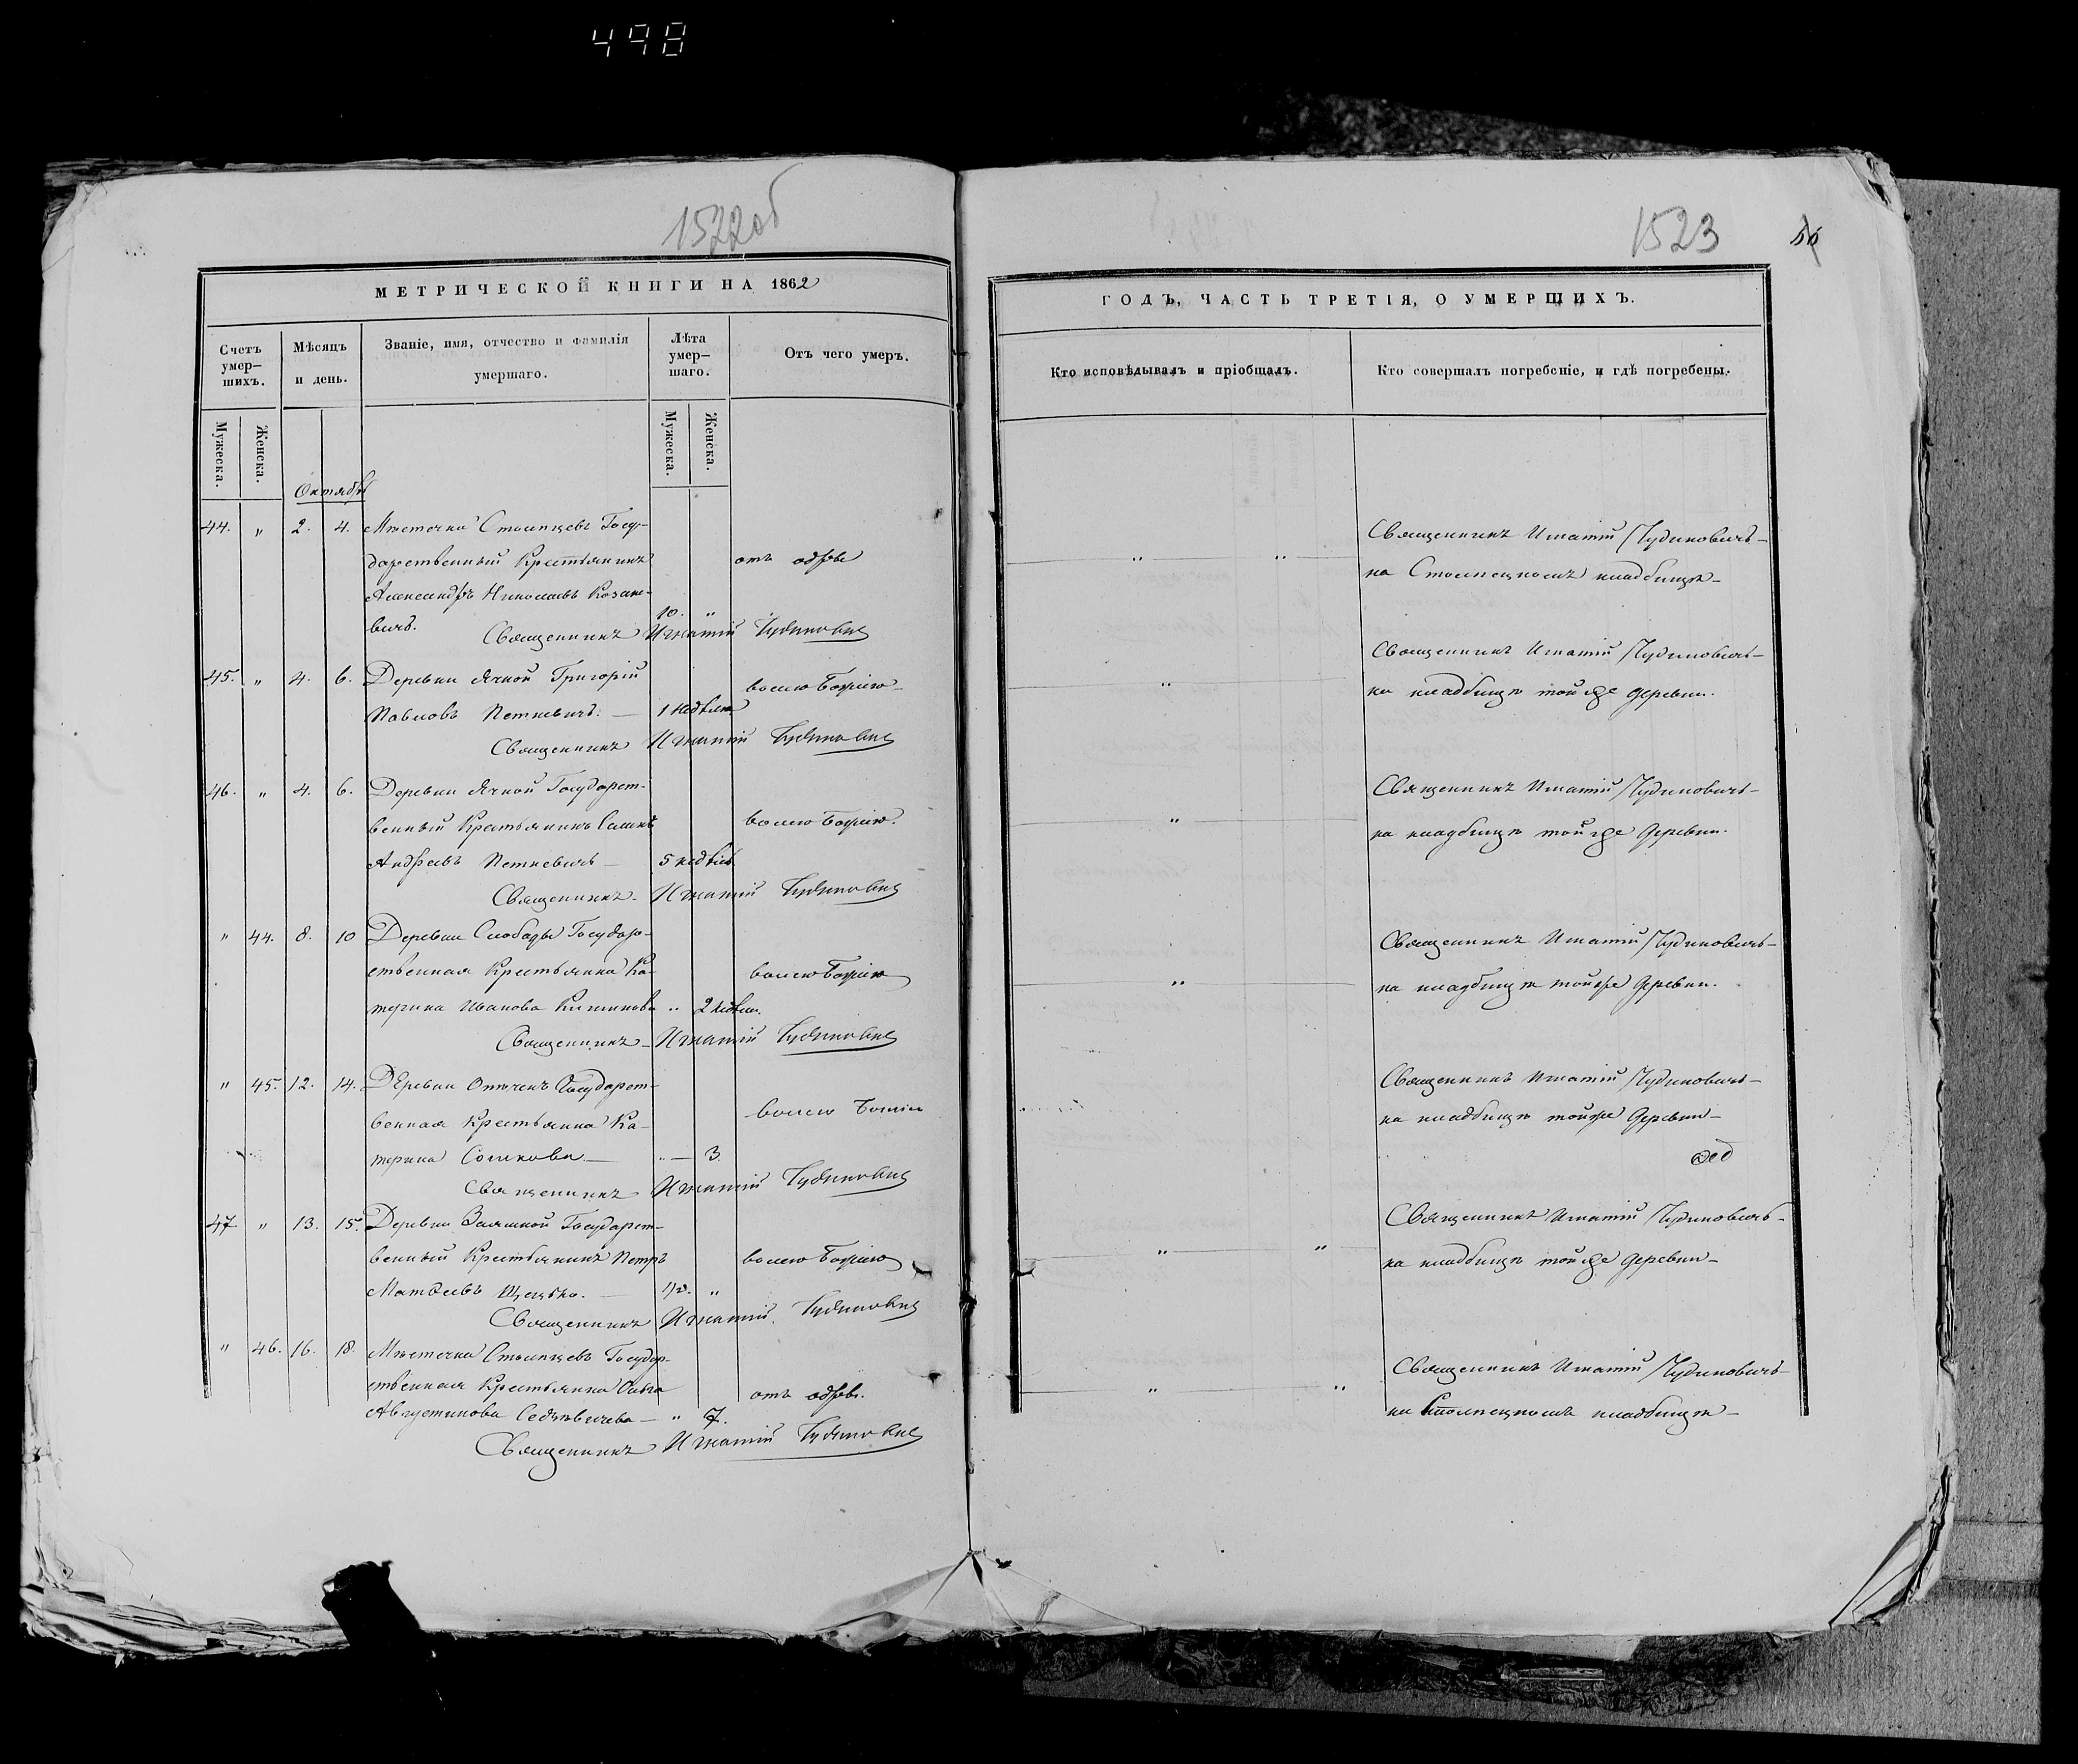 498
1522об
МЕТРИЧЕСКОЙ КНИГИ НА 1862
Счетъ умер-шихъ.
Мѣсяцъ и день.
Званіе, имя, отчество и фамилія умершаго.
Лѣта умер-шаго.
Отъ чего умеръ.
Мужеска.
Женска.
Мужеска.
Женска.
Октябрь
44. " 2. 4. Мѣстечка Столпцевъ Госу-
дарственный Крестьянинъ отъ одры
Александръ Николаевъ Казаке-
вичъ. 10. "
Священникъ Игнатій Чудиновичъ
45. " 4. 6. Деревни Ячной Григорій
волею Божіею
Павловъ Петкевичъ. — 1 недѣля
Священникъ Игнатій Чудиновичъ
46. " 4. 6. Деревни Ячной Государст-
венный Крестьянинъ волею Божіею.
Андреевъ Петкевичъ — 5 недѣль
Священникъ Игнатій Чудиновичъ
" 44. 8. 10 Деревни Слободы Государ-
ственная Крестьянка Ка- волею Божіею
терина Иванова " 2 недѣли.
Священникъ Игнатій Чудиновичъ
" 45. 12. 14. Деревни Государст-
венная Крестьянка Ка- волею Божіею
терина — " — 3.
Священникъ Игнатій Чудиновичъ
47. " 13. 15. Деревни Государст-
венный Крестьянинъ Петръ волею Божіею
Матѳеевъ — 1/2. "
Священникъ Игнатій Чудиновичъ
" 46. 16. 18. Мѣстечка Столпцевъ Государ-
ственная Крестьянка отъ одры.
Августинова — " 7.
Священникъ Игнатій Чудиновичъ
1523
ГОДЪ, ЧАСТЬ ТРЕТІЯ, О УМЕРШИХЪ.
Кто исповѣдывалъ и пріобщалъ.
Кто совершалъ погребеніе, и гдѣ погребены.
Священникъ Игнатій Чудиновичъ —
" " на Столпецкомъ кладбищѣ —
Священникъ Игнатій Чудиновичъ —
" на кладбищѣ той же деревни.
Священникъ Игнатій Чудиновичъ —
" на кладбищѣ той же деревни.
Священникъ Игнатій Чудиновичъ —
" на кладбищѣ той же деревни.
Священникъ Игнатій Чудиновичъ —
на кладбищѣ той же деревни —
Священникъ Игнатій Чудиновичъ —
" " на кладбищѣ той же деревни —
Священникъ Игнатій Чудиновичъ —
" " на Столпецкомъ кладбищѣ —